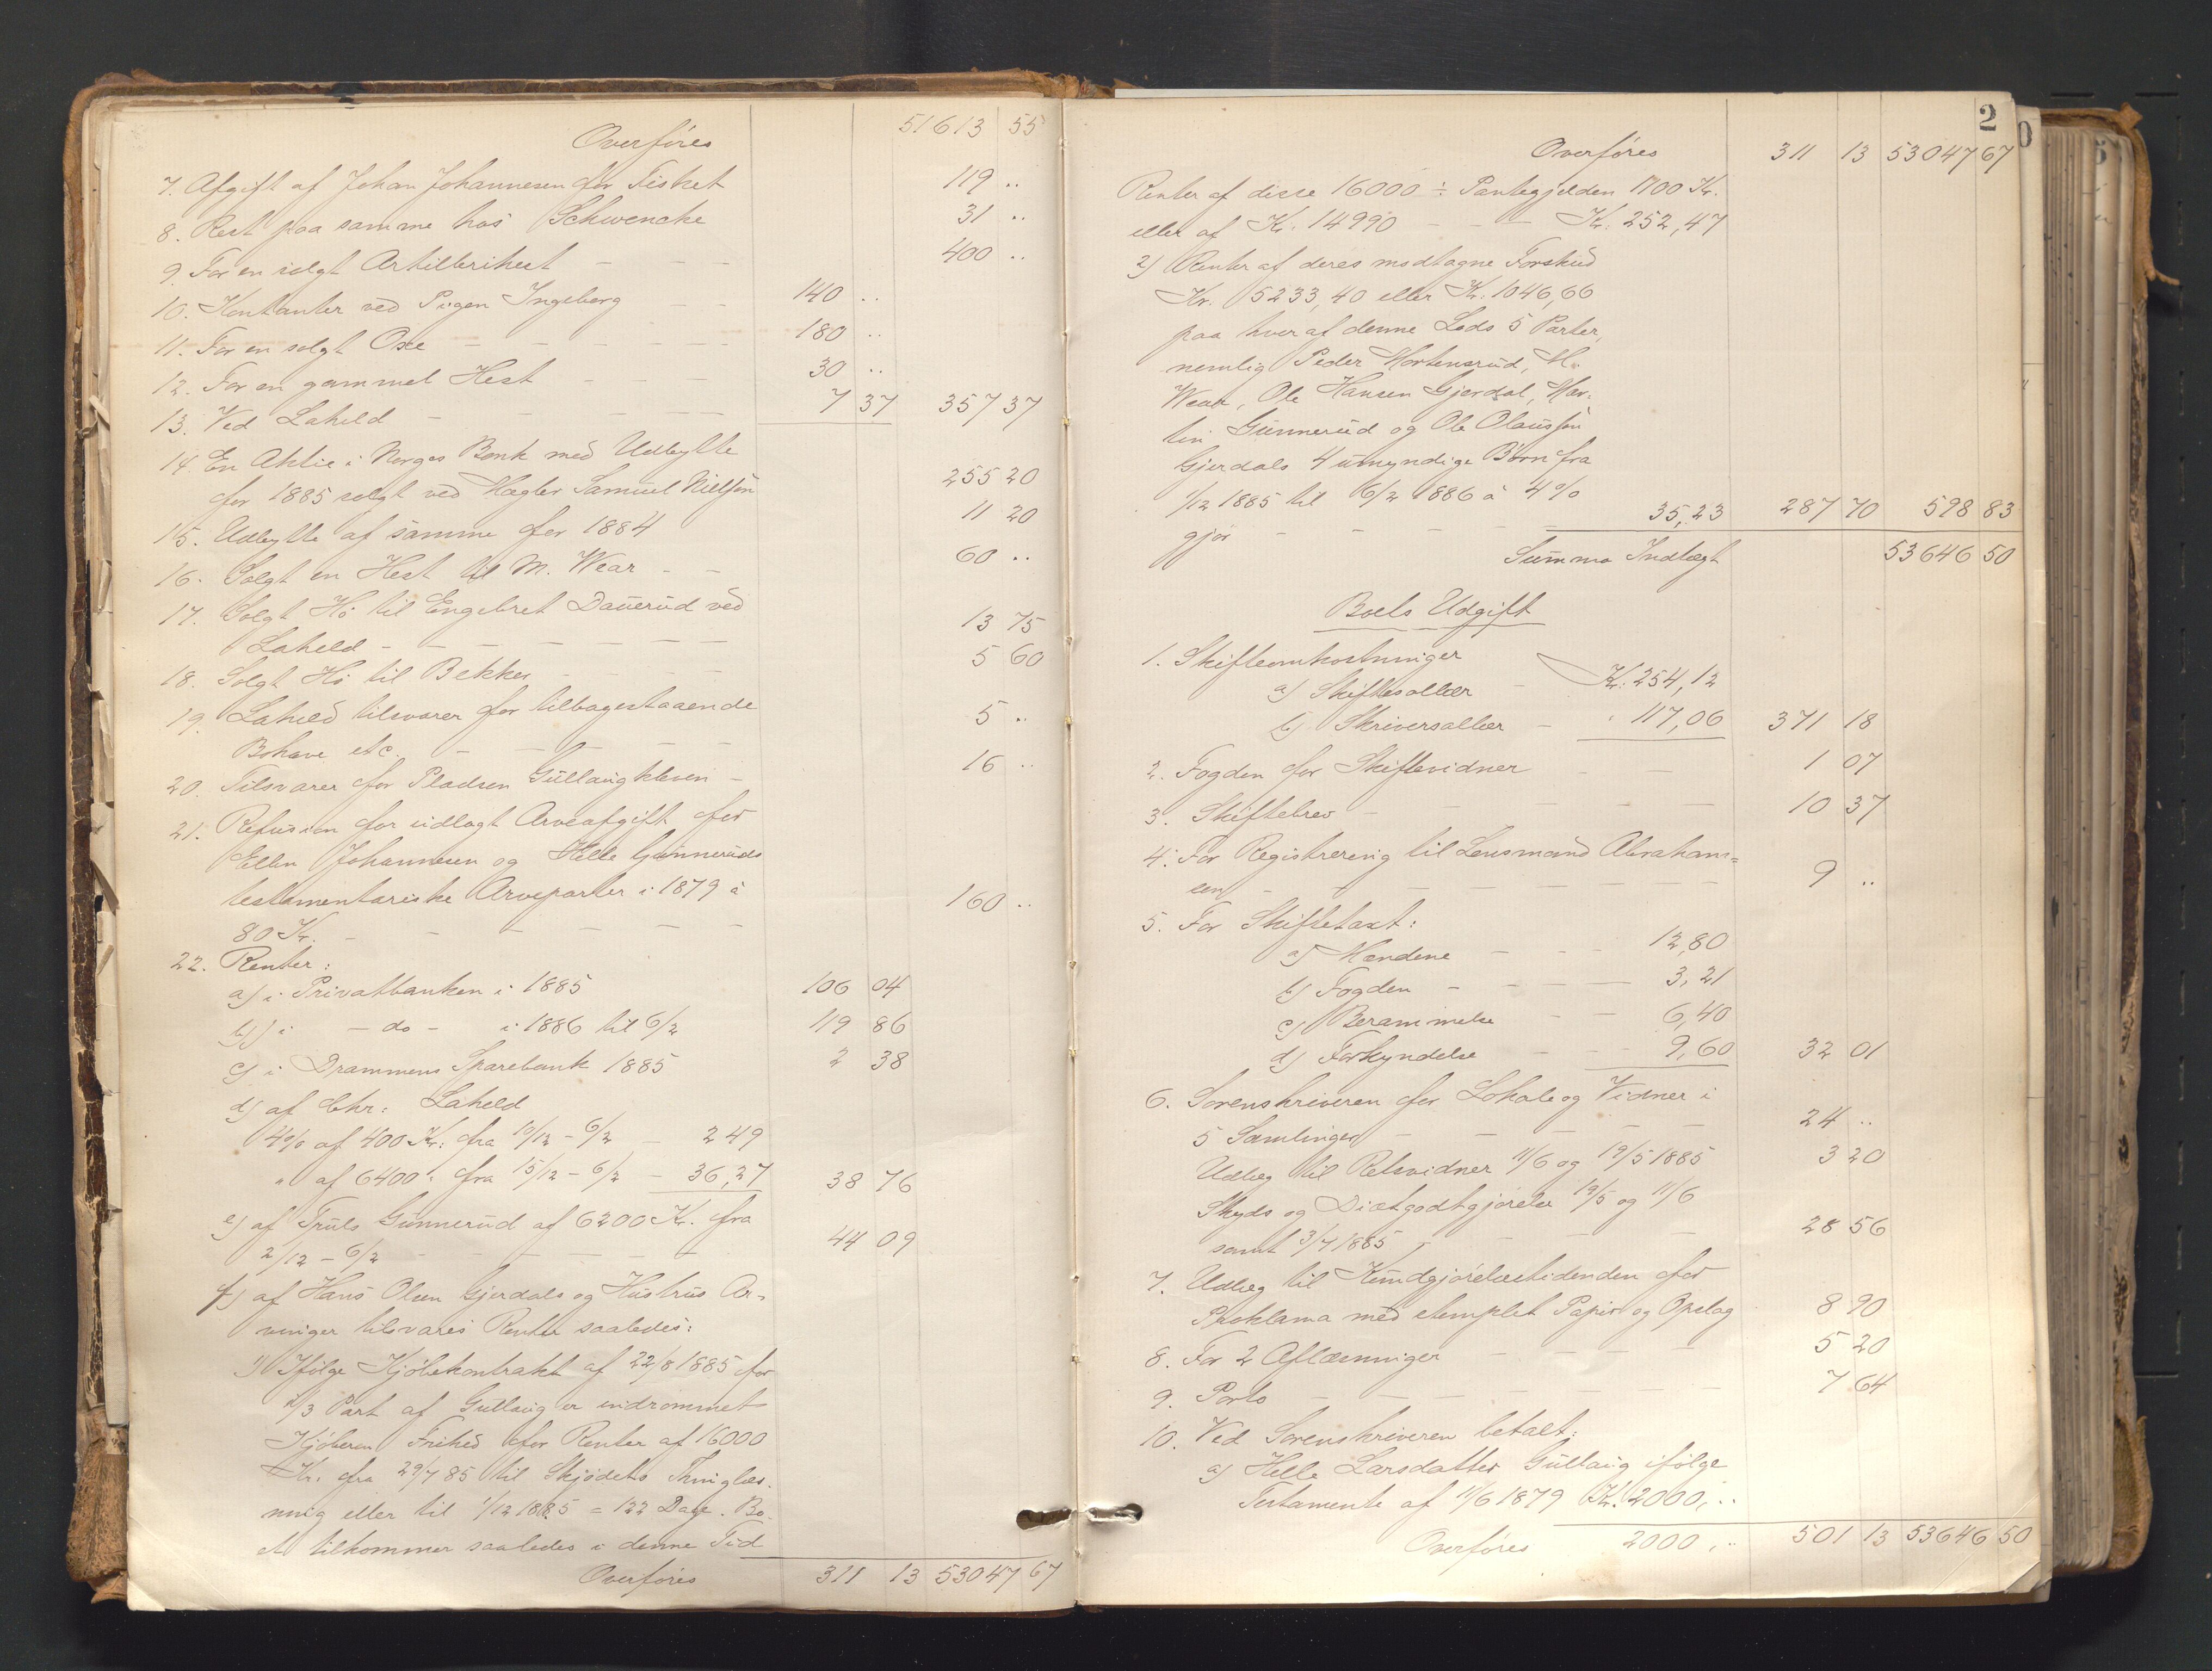 Overføres 51613 55
7. Afgift af Johan Johannesen for Fisket 119 ..
8. Rest paa samme hos Schwencke 31 ..
9. For en solgt Artillerihest - - - 400 ..
10. Kontanter ved Pigen Ingeborg - - 140 ..
11. For en solgt Oxe - - - - - - 180 ..
12. For en gammel Hest - - - - 30 ..
13. Ved Laheld - - - - - 7 37 357 37
14. En Aktie i Norges Bank med Udbytte
for 1885 solgt ved Mægler Samuel Nielsen 255 20
15. Udbytte af samme for 1884 11 20
16. Solgt en Hest til M. Wear - - 60 ..
17. Solgt Hø til Engebret Dauerud ved
Laheld - - - - - - - 13 75
18. Solgt Hø til Bekker - - - - 5 60
19. Laheld tilsvarer for tilbagestaaende
Bohave etc. - - - - - - 5 ..
20. Tilsvarer for Pladsen Gullaugkleven - 16 ..
21. Refusion for udlagt Arveafgift for
Ellen Johannesen og Helle Gunneruds
testamentariske Arveparter i 1879 à
80 Kr. - - - - - - 160 ..
22. Renter:
a) i Privatbanken i 1885 106 04
b) i - do - i 1886 til 6/2 119 86
c) i Drammens Sparebank 1885 2 38
d) af Chr: Laheld
4% af 400 Kr: fra 10/12 - 6/2 - 2 49
" af 6400 " fra 15/12 - 6/2 - 36,27 38 76
e) af Truls Gunnerud af 6200 Kr. fra
2/12 - 6/2 - - - - - - 44 09
f) af Hans Olsen Gjerdals og Hustrus Ar-
vinger tilsvares Renter saaledes:
1) Ifølge Kjøbekontrakt af 22/8 1885 for
2/3 Part af Gullaug er indrømmet
Kjøberen Frihed for Renter af 16000
Kr. fra 29/7 85 til Skjødets Thinglæs-
ning eller til 1/12 1885 = 122 Dage. Bo-
et tilkommer saaledes i denne Tid
Overføres 311 13 53047 67
2
Overføres 311 13 53047 67
Renter af disse 16000 ÷ Pantegjelden 1100 Kr.
eller af Kr. 14990 - - - Kr. 252,47
2) Renter af deres modtagne Forskud
Kr. 5233,40 eller Kr. 1046,66
paa hver af denne Lods 5 Parter,
nemlig Peder Mortensrud, M.
Wear, Ole Hansen Gjerdal, Mar-
tin Gunnerud og Ole Olaussøn
Gjerdals 4 umyndige Børn fra
1/12 1885 til 6/2 1886 à 4%
gjør - - - - - 35,23 287 70 598 83
Summa Indtægt 53646 50
Boets Udgift
1. Skifteomkostninger
a) Skiftesallær - Kr. 254,12
b) Skriversallær - " 117,06 371 18
2. Fogden for Skiftevidner - - 1 07
3. Skiftebrev - - - - - 10 37
4. For Registrering til Lensmand Abraham-
sen - - - - - - - 9 ..
5. For Skiftetaxt:
a) Mændene - - - 12,80
b) Fogden - - - - 3,21
c) Berammelse - - 6,40
d) Forkyndelse - - 9,60 32 01
6. Sorenskriveren for Lokale og Vidner i
5 Samlinger - - - - - - 24 ..
Udlæg til Retsvidner 11/6 og 19/5 1885 3 20
Skyds og Diætgodtgjørelse 19/5 og 11/6
samt 3/7 1885 - - - - - 28 56
7. Udlæg til Kundgjørelsestidenden for
Proklama med stemplet Papir og Opslag 8 90
8. For 2 Aflæsninger - - - - 5 20
9. Porto - - - - - - - 7 64
10. Ved Sorenskriveren betalt:
a) Helle Larsdatter Gullaug ifølge
Testamente af 11/6 1879 Kr. 2000,..
Overføres 2000,.. 501 13 53646 50